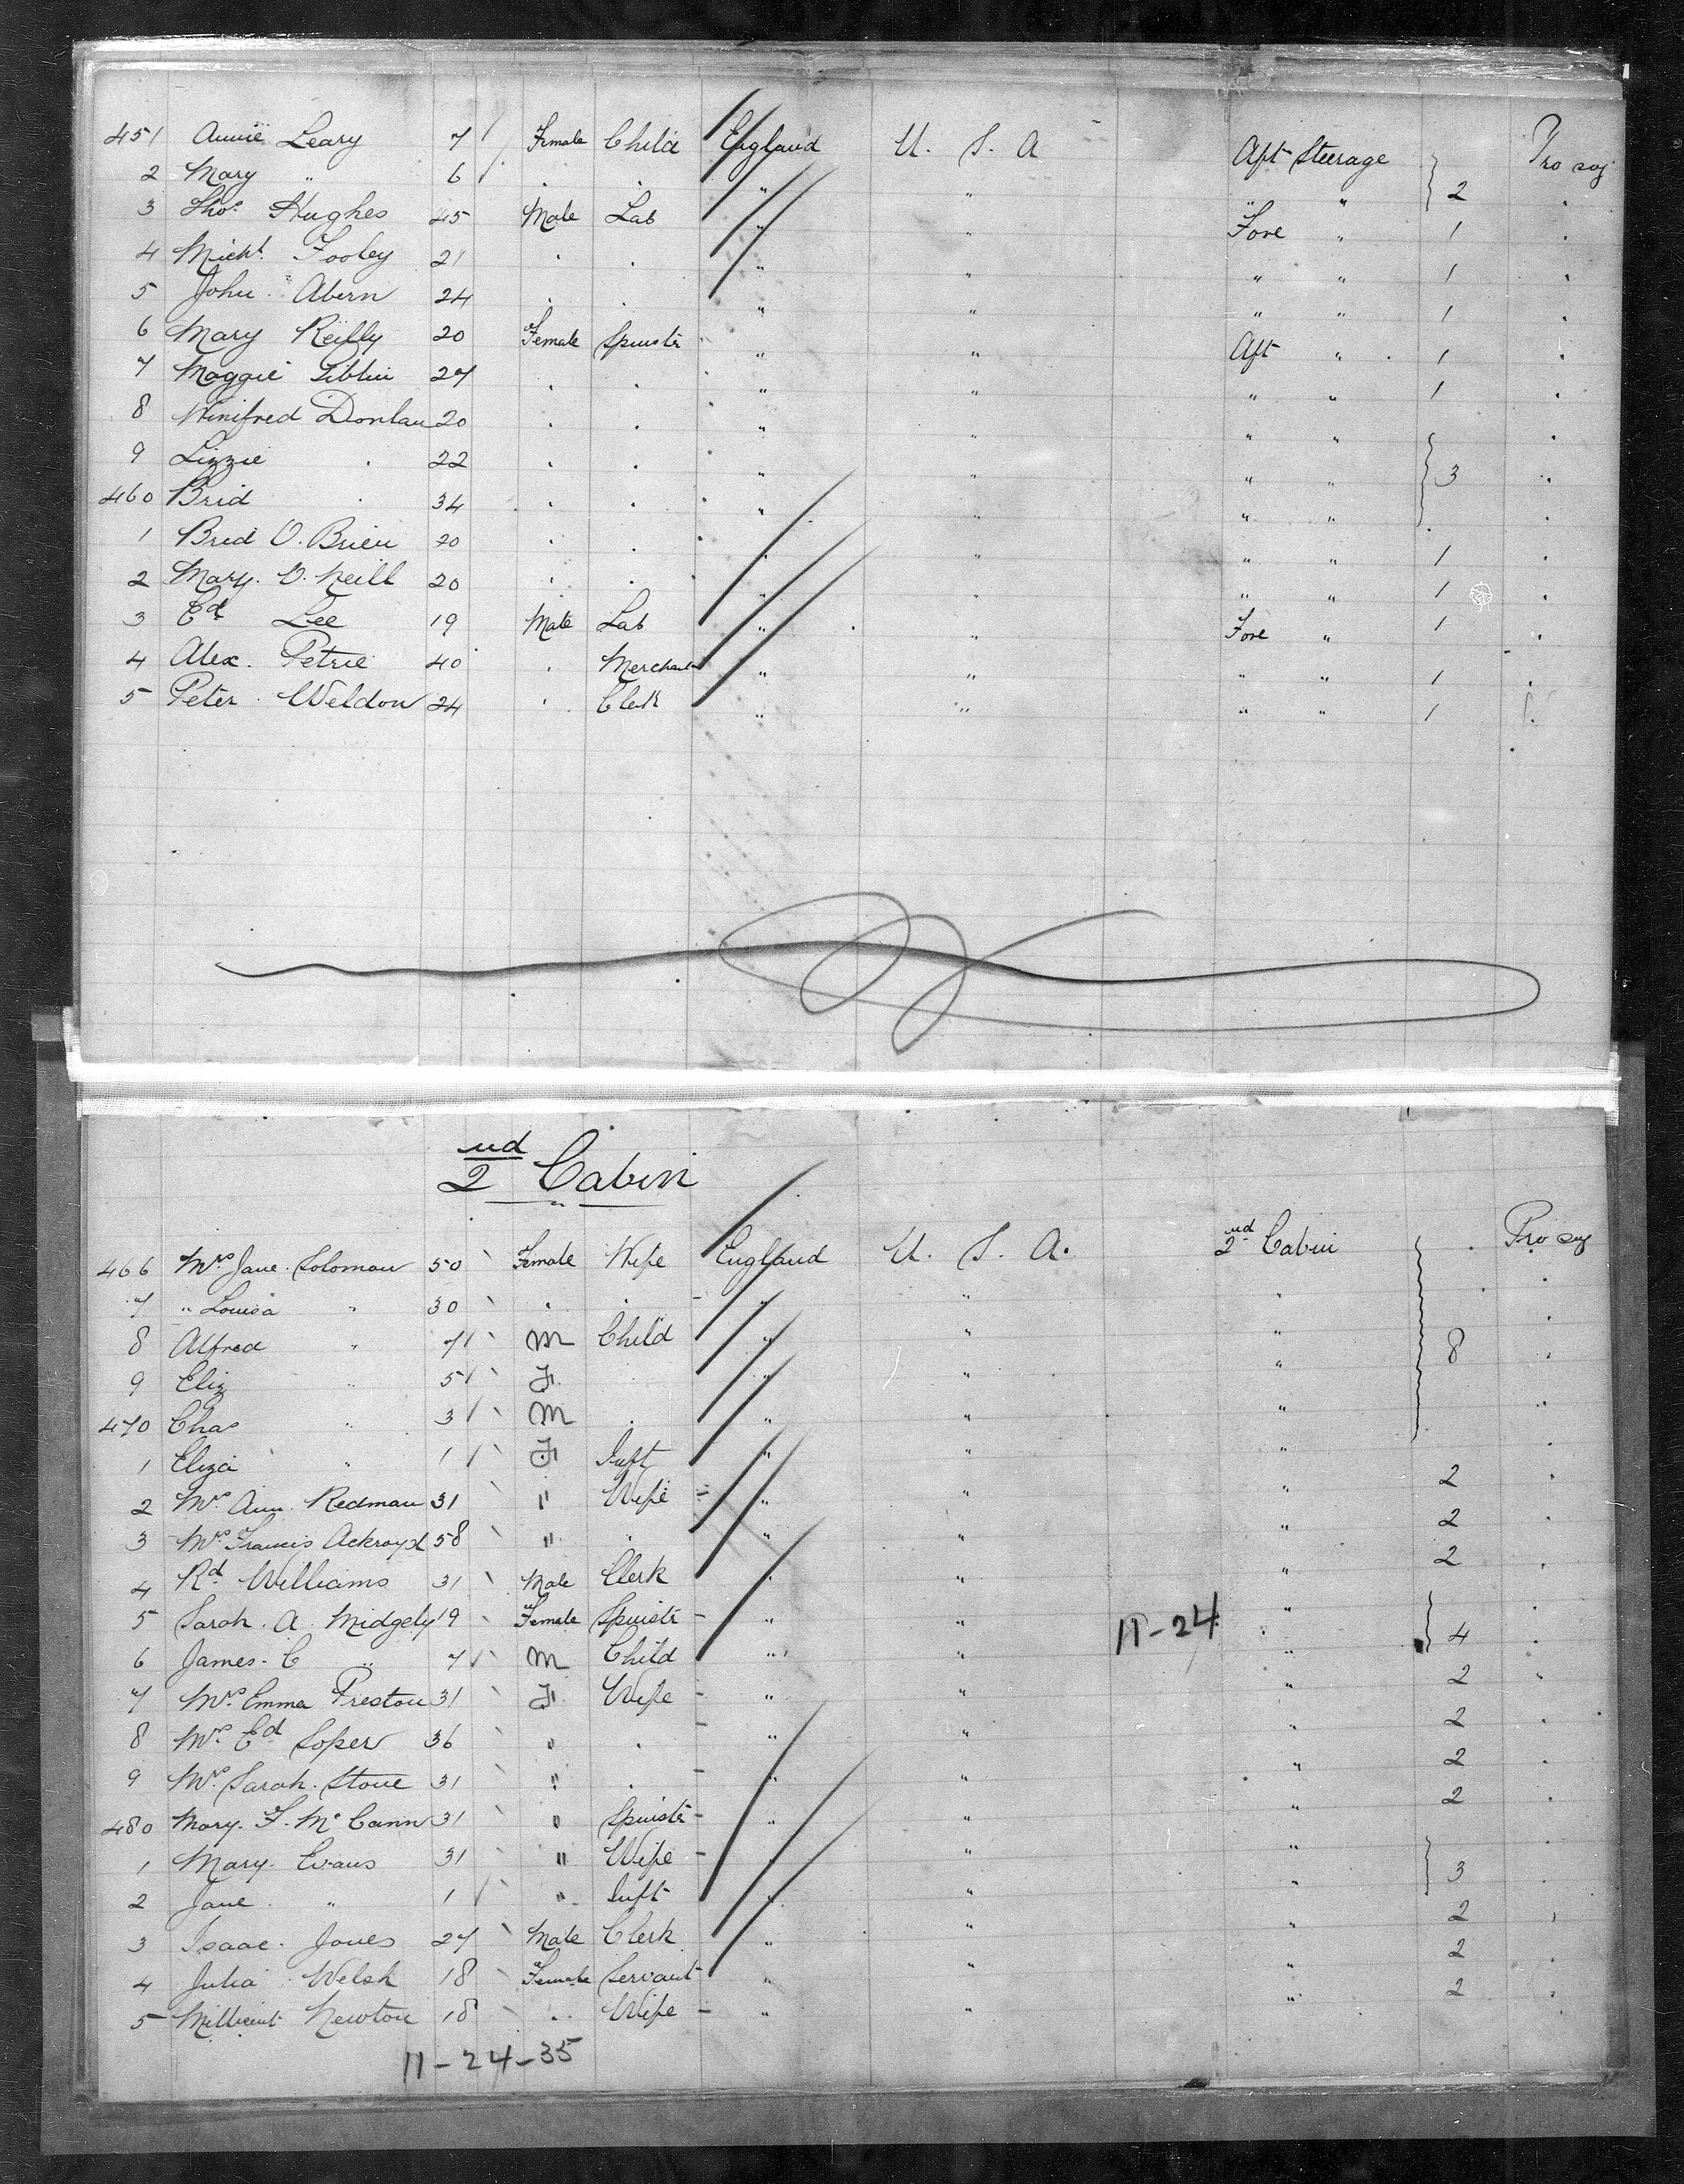 451 Annie Leary 7 / Female Child England U. S. A Aft Steerage Pro soj
2 Mary " 6 / . . " " " " 2 .
3 Thos. Hughes 45 Male Lab " " Fore " 1 .
4 Michl. Tooley 21 . . " " " " 1 .
5 John Ahern 24 . . " " " " 1 .
6 Mary Reilly 20 Female Spinstr " " Aft " 1 .
7 Maggie Giblin 27 . . " " " " 1 .
8 Winifred Donlan 20 . . " " " " .
9 Lizzie . 22 . . " " " " 3 .
460 Brid . 34 . . " " " " .
1 Brid O. Brien 20 . . " " " " 1 .
2 Mary. O. Neill 20 . . " " " " 1 .
3 Ed Lee 19 Male Lab " " Fore " 1 .
4 Alex. Petrie 40 . Merchant " " " " 1 .
5 Peter Weldon 24 . Clerk " " " " 1 .
2nd Cabin
466 Mrs Jane Solomon 50 Female Wife England U. S. A. 2nd Cabin Pro soj
7 " Louisa " 30 . . " " " .
8 Alfred " 7 M Child " " " 8 .
9 Eliz " 5 F. " " " .
470 Chas " 3 M . " " " .
1 Eliza " 1 F Inft " " " .
2 Mrs. Ann Redman 31 " Wife " " " 2 .
3 Mrs Francis Ackroyd 58 " " " " " 2
4 Rd Williams 31 Male Clerk " " " 2 .
5 Sarah. A. Midgely 19 Female Spinstr " " 11-24 " .
6 James. C " 7 M Child " " " 4 .
7 Mrs. Emma Preston 31 F. Wife " " " 2 "
8 Mrs. Ed Soper 36 " . " " " 2 .
9 Mrs. Sarah. Stone 31 " . " " " 2 .
480 Mary. F. McCann 31 " Spinstr " " " 2 .
1 Mary. Evans 31 " Wife " " " .
2 Jane " 1 " Inft " " " 3 .
3 Isaac. Jones 27 Male Clerk " " " 2 .
4 Julia Welsh 18 Female Servant " " " 2 .
5 Millicent Newton 18 " Wife " " " 2 .
11-24-35